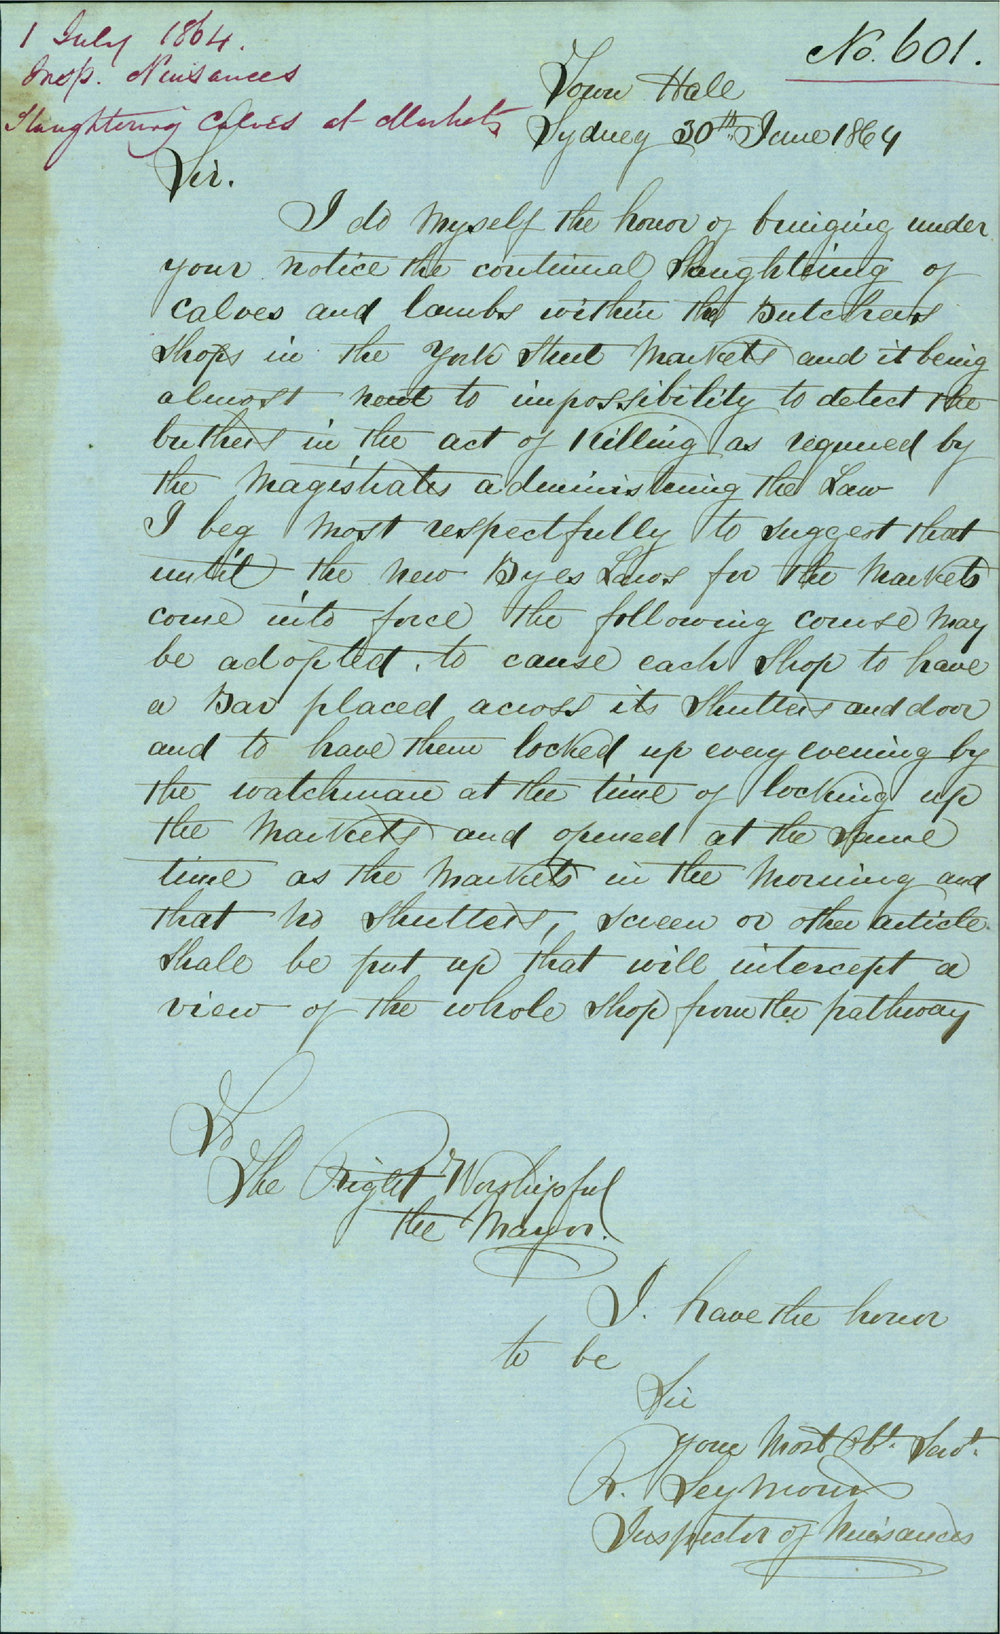 1 July 1864.
Insp. Nuisances
Slaughtering Calves at Markets
No. 601.
Town Hall
Sydney 30th June 1864
Sir.
I do myself the honor of bringing under
your notice the continual Slaughtering of
Calves and lambs within the Butchers
Shops in the York Street Markets and it being
almost next to impossibility to detect the
buthers in the act of Killing as required by
the Magistrates administering the Law
I beg most respectfully to suggest that
until the new Byes Laws for the Markets
come into force the following course may
be adopted. to cause each Shop to have
a Bar placed across its Shutters and door
and to have them locked up every evening by
the watchman at the time of locking up
the Markets and opened at the same
time as the Markets in the Morning and
that no Shutters, screen or other article
Shall be put up that will intercept a
view of the whole Shop from the pathway
To
The Right Worshipful
the Mayor.
I. have the honor
to be
Sir
your Most Obt. Servt.
R. Seymour
Inspector of Nuisances